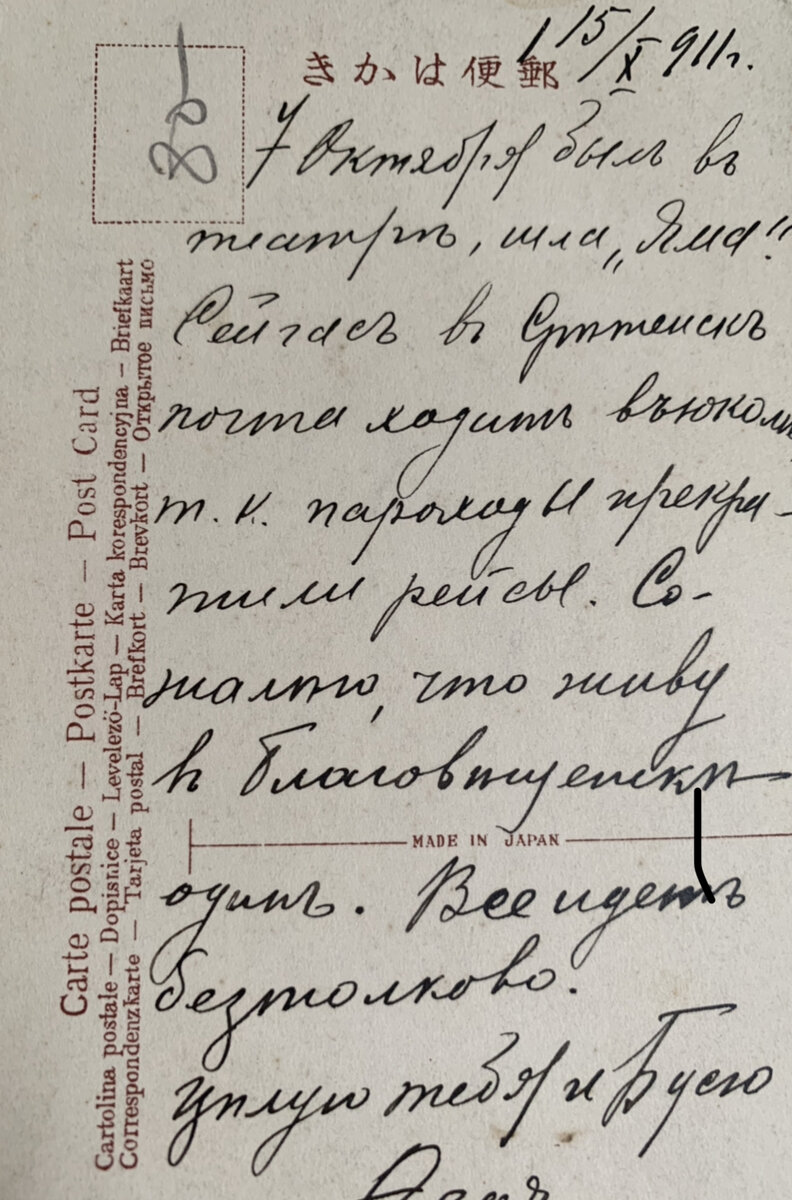 きかは便郵
15/X 911 г.
7 Октября былъ въ
театрѣ, шла „Яма".
Сейчасъ въ Срѣтенскъ
почта ходитъ въюкомъ,
т. к. пароходы прекра-
тили рейсы. Со-
жалѣю, что живу
въ Благовѣщенскѣ
MADE IN JAPAN
одинъ. Все идетъ
безтолково.
Цѣлую тебя и Бусю
Carte postale — Postkarte — Post Card
Cartolina postale — Dopisnice — Levelező-Lap — Karta korespondencyjna — Briefkaart
Correspondenzkarte — Tarjeta postal — Brefkort — Brevkort — Открытое письмо